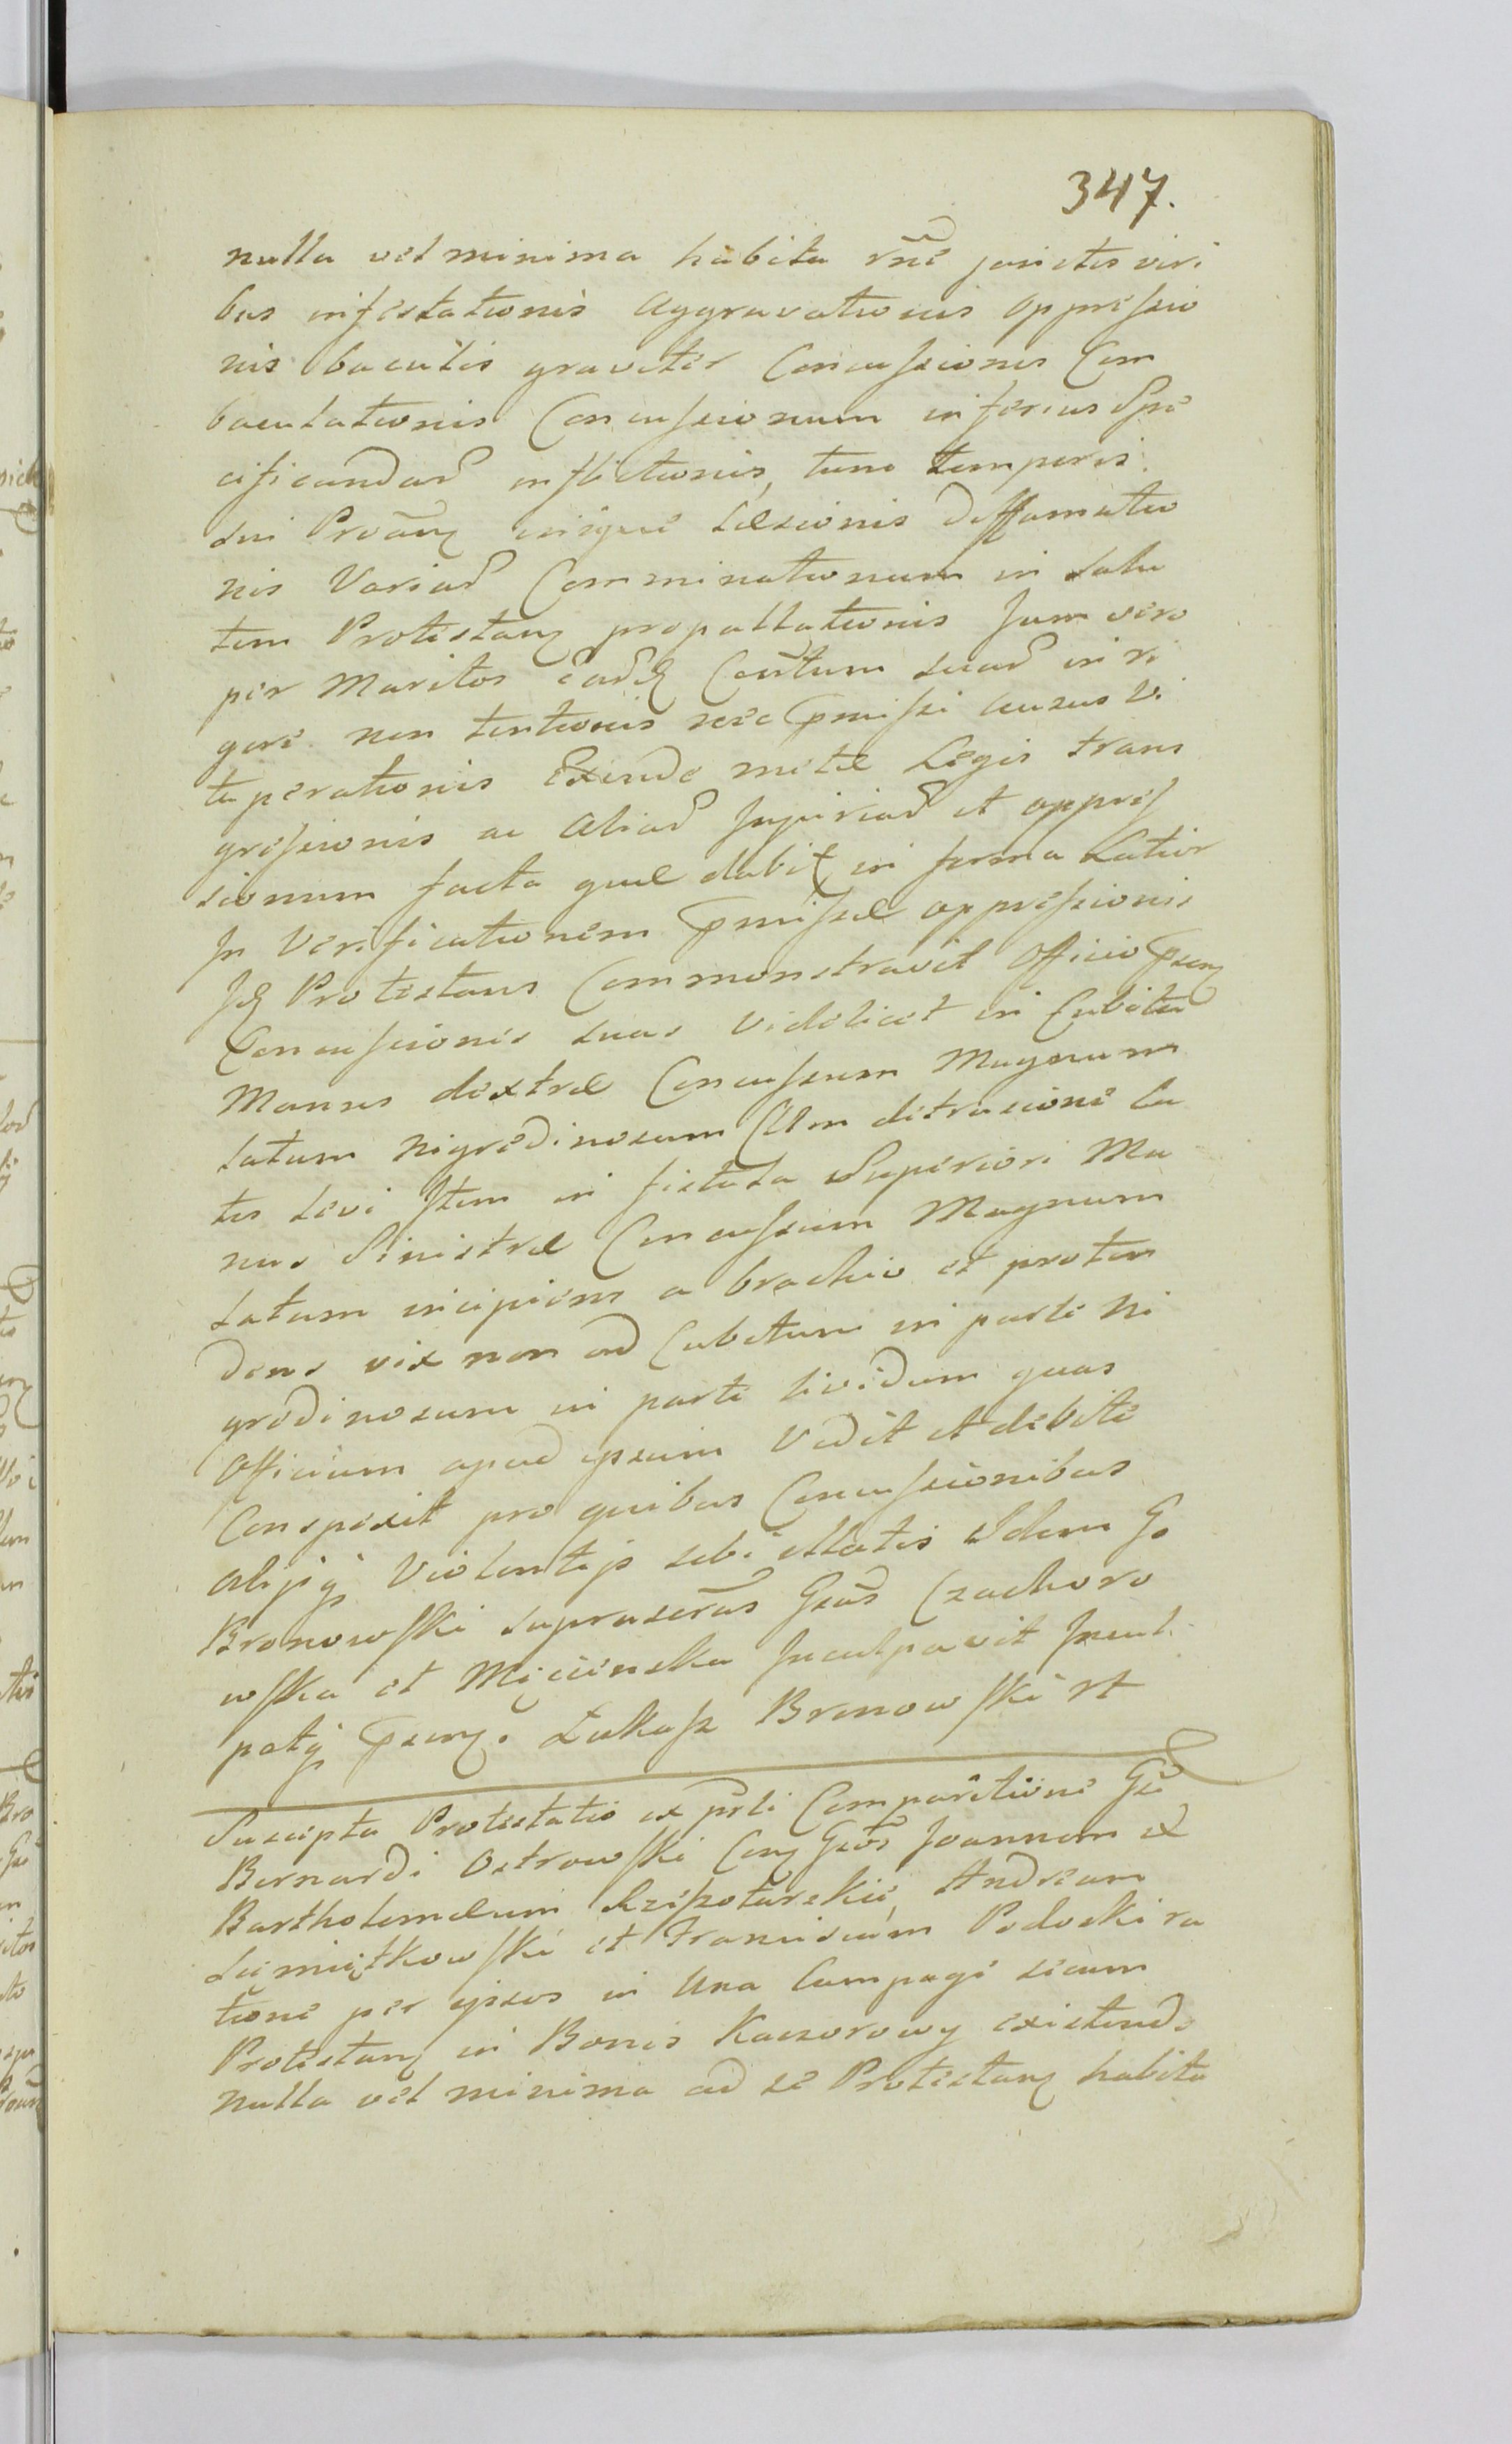 347.
nulla vel minima habita rñe junctis viri
bus infestationis Aggravationis oppressio
nis baculis graviter Concussionis Com
baculationis Concussionum inferius Spe
cificandar inflictionis, tunc temporis
sui inique Læsionis Deffamatio
nis Variar Comminationum in salu
tem Protestan propallationis Jam vero
per Maritos suar in ri
gore non tentionis nec pmissi ausus vi
tuperationis Exinde metæ Legis trans
gressionis ac Aliar Injuriar et oppres
sionum facta quæ dabit in forma Latior
In Verificationem pmissæ oppressionis
Protestans Commonstravit Officio psenq
Concussiones suas videlicet in Cubitu
Manus dextræ Concussum Magnum
Latum Nigredinosum Cum detrusione Cu
tis Levi Item in fistula Superiori Ma
nus Sinistræ Concussum Magnum
Latum incipiens a brachio et proten
dens vix non ad Cubitum in parte Ni
gredinosum in parte lividum quas
Officium apud ipsum Vidit et debite
Conspexit pro quibus Concussionibus
Alijsq Violentijs sibi illatis Idem G.
Bronowski suprascras Gsas Czachoro
wska et Męcinska Inculpavit Incul
patq psenq. Łukasz Bronowski st
Suscepta Protestatio ex prli Comparitione Gsi
Bernardi Ostrowski Con Gsos Joannem et
Bartholomæum Andream
Sämiątkowski et Franciscum Podoski ra
tione per ipsos in Una Compage secum
Protestan in Bonis Kaczorowy existend.
nulla vel minima ad se Protestan habita